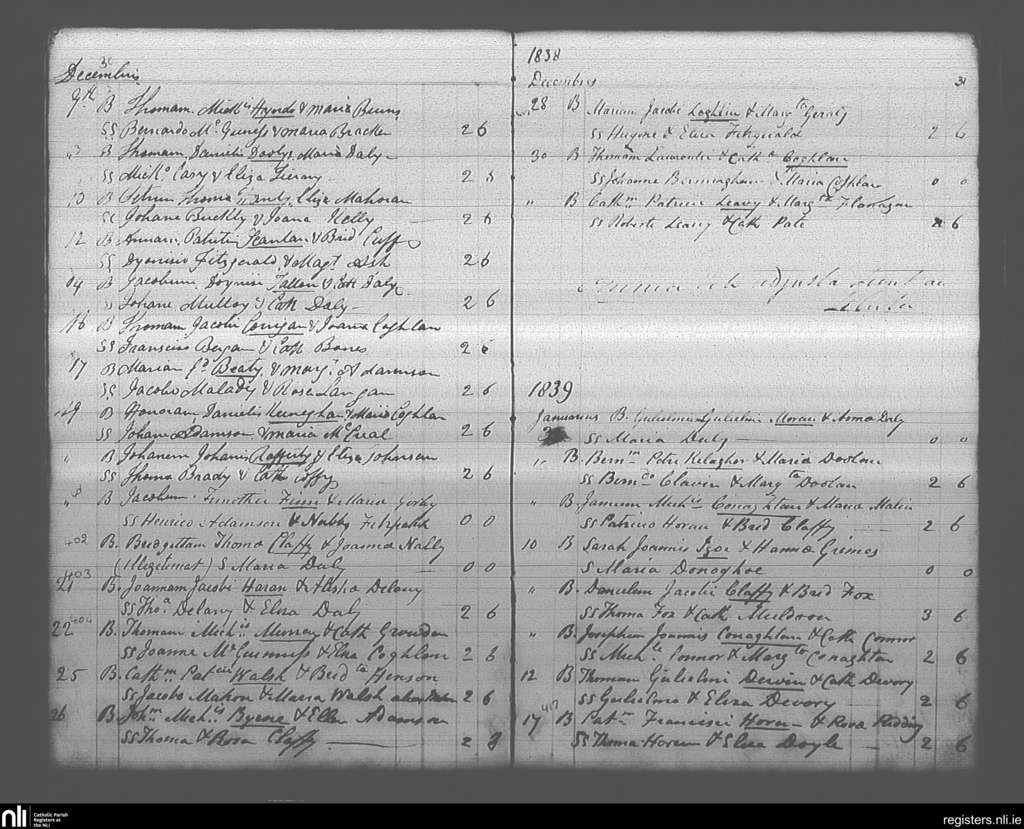 Decembris
9th B Thomam Mich.is Hynds & Maria Burns
SS Bernardo Mc Guness & Maria Bracken 2 6
B Thomam Danielis Dooly & Maria Daly
SS Mich.o Casy & Eliza 2 6
10 B Petrum Thoma & Eliza Mahoran
SS Johane Buckly & Joana Kelly 2 6
12 B Annam Patritii Scanlan & Brid Cuffe
SS Dyonisio Fitzgerald & Magt Ash 2 6
14 B Jacobum Doynisii Fallon & Cath Daly
" Johane Mulloy & Cath Daly 2 6
16 B Thomam Jacobi Corrigan & Joana Coghlan
SS Fransisco Bergan & Cath Bones 2 6
17 B Mariam Beaty & Mary Adamson
SS Jacobo Malady & Rose Langan 2 6
19 B Honoram Danielis Keneghan & Maria Coghlan
SS Johane Adamson & Maria Mc Creal 2 6
" B Johanem Johanis Rafferty & Eliza Johnson
SS Thoma Brady & Cath Claffy 2 6
" B Jacobum Timothei Finn & Maria
SS Henrico Adamson & Nabby Fitzpatk 0 0
402 B. Bridgettam Thoma Claffy & Joanna Nally
(Illegitimat) S Maria Daly 0 0
403
21 B. Joannam Jacobi Haran & Alisha Delany
SS Tho.a Delany & Eliza Daly 2 6
404
22 B. Thomam Mich.is Murray & Cath Growden
SS Joanne Mc Guinness & Elza Coghlan 2 6
25 B. Cath.m Pat.cii Walsh & Brid.ta Henson
SS Jacobo Mahon & Maria Walsh 2 6
26 B Joh.m Mich.is Byrne & Ellen Adamson
SS Thoma & Rosa Claffy 2 6
1838
Decembres 31
28 B Mariam Jacobi Loghlin & Marg.ta Geraty
SS Hugone & Eliza Fitzgerald 2 6
30 B Thomam Laurentii & Cath.a Coghlan
SS Johanne Bermingham & Maria Coghlan 0 0
" B Cath.m Patricii Leavy & Marg.ta Flanagan
SS Roberto Leavy & Cath Pate 2 6
1839
Januarius B. Gulielmum Gulielmi Moran & Anna Daly
SS Maria Daly 0 0
" B. Bern.m Petri Kelagher & Maria Doolan
SS Bern.do Clavin & Marg.ta Doolan 2 6
" B Jameum Mich.is Conaghtan & Maria Malin
SS Patricio Horan & Brid Claffy 2 6
10 B Sarah Joannis Igoe & Hanna Grimes
S Maria Donoghoe 0 0
" B. Danielem Jacobi Claffy & Brid Fox
SS Thoma Fox & Cath Muldoon 3 6
" B. Josephum Joannis Conaghtan & Cath Connor
SS Mich.le Connor & Marg.ta Conaghtan 2 6
12 B Thomam Gulielmi Dervin & Cath Devory
SS Gulielmo & Eliza Devory 2 6
417
17 B Cat.m Francisci Horan & Rosa Redding
SS Thoma Horan & Eliza Doyle 2 6
nli
Catholic Parish
Registers at
the NLI
registers.nli.ie